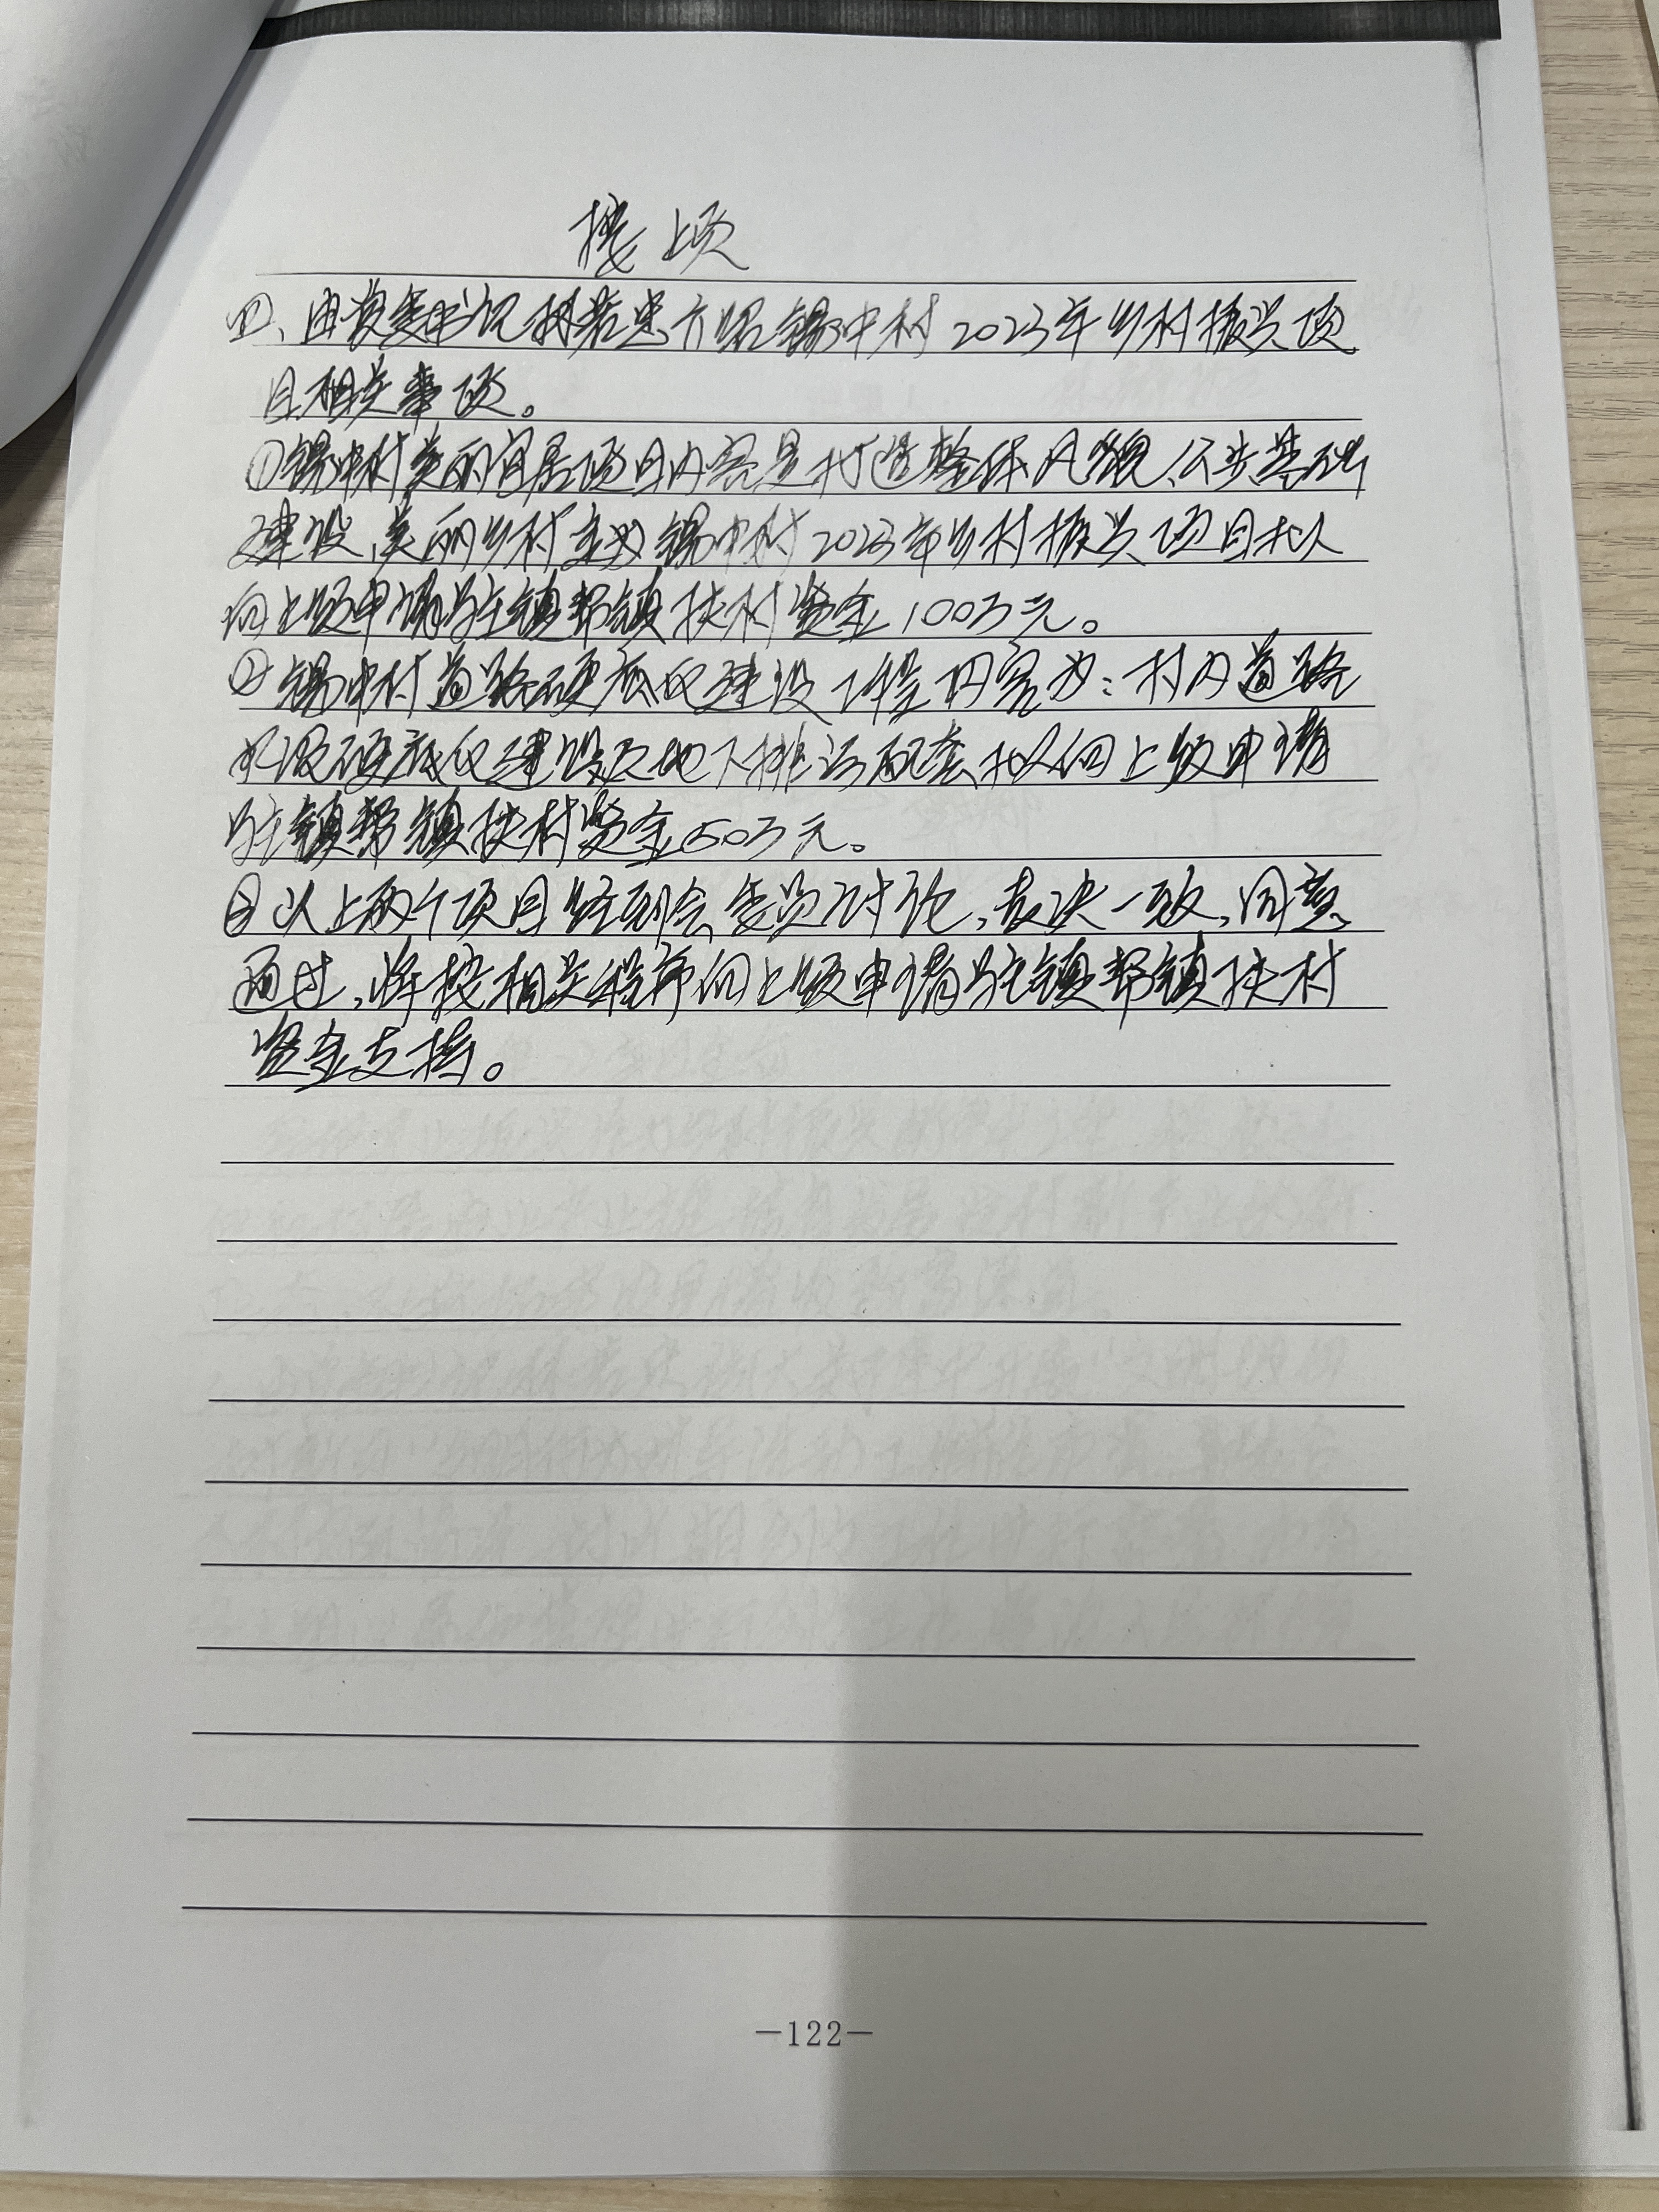 接上页
四、由党委书记林若思介绍锦中村2023年乡村振兴项
目相关事项。
①锦中村美丽宜居项目内容是打造整体风貌、公共基础
建设、美丽乡村主为锦中村2023年乡村振兴项目拟
向上级申请驻镇帮镇扶村资金100万元。
②锦中村道路硬底化建设工作内容为:村内道路
水泥硬底化建设及地下排污配套拟向上级申请
驻镇帮镇扶村资金50万元。
③以上两个项目经到会委员讨论,表决一致,同意
通过,将按相关程序向上级申请驻镇帮镇扶村
资金支持。
—122—